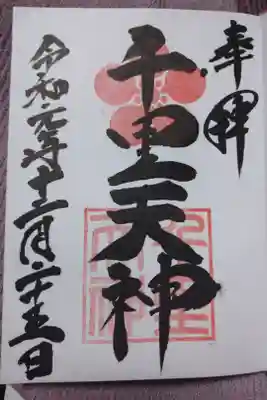 奉拝
千里天神
令和元年十二月二十五日